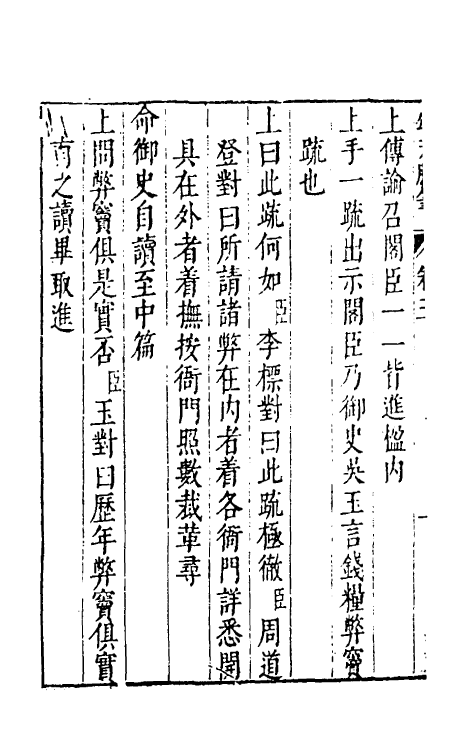 上傳諭召閣臣一一皆進楹内
上手一疏出示閣臣乃御史吳玉言錢糧弊竇
疏也
上曰此疏何如臣李標對曰此疏極徹臣周道
登對曰所請諸弊在内者着各衙門詳悉開
具在外者着撫按衙門照數裁革尋
命御史自讀至中篇
上問弊竇俱是實否臣玉對曰歷年弊竇俱實
有之讀畢取進